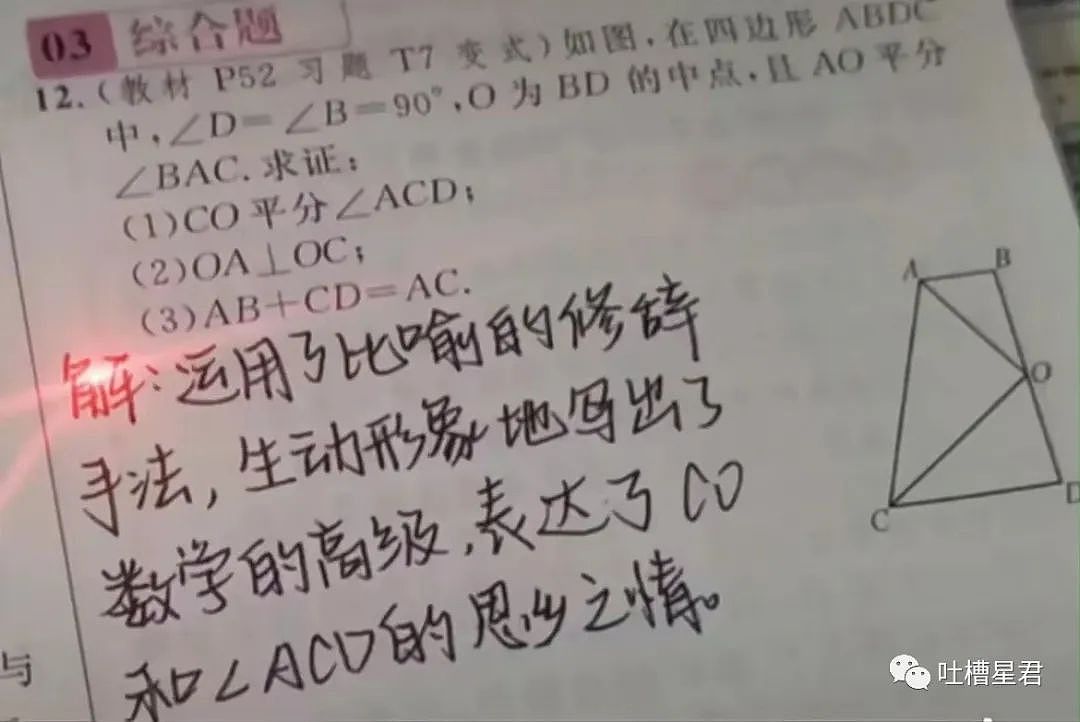 03 综合题
12.(教材 P52 习题 T7 变式)如图,在四边形 ABDC
中,∠D=∠B=90°,O 为 BD 的中点,且 AO 平分
∠BAC.求证:
(1)CO 平分∠ACD;
(2)OA⊥OC;
(3)AB+CD=AC.
解:运用了比喻的修辞
手法,生动形象地写出了
数学的高级,表达了CO
和∠ACD的思乡之情。
A
B
O
C
D
与
吐槽星君